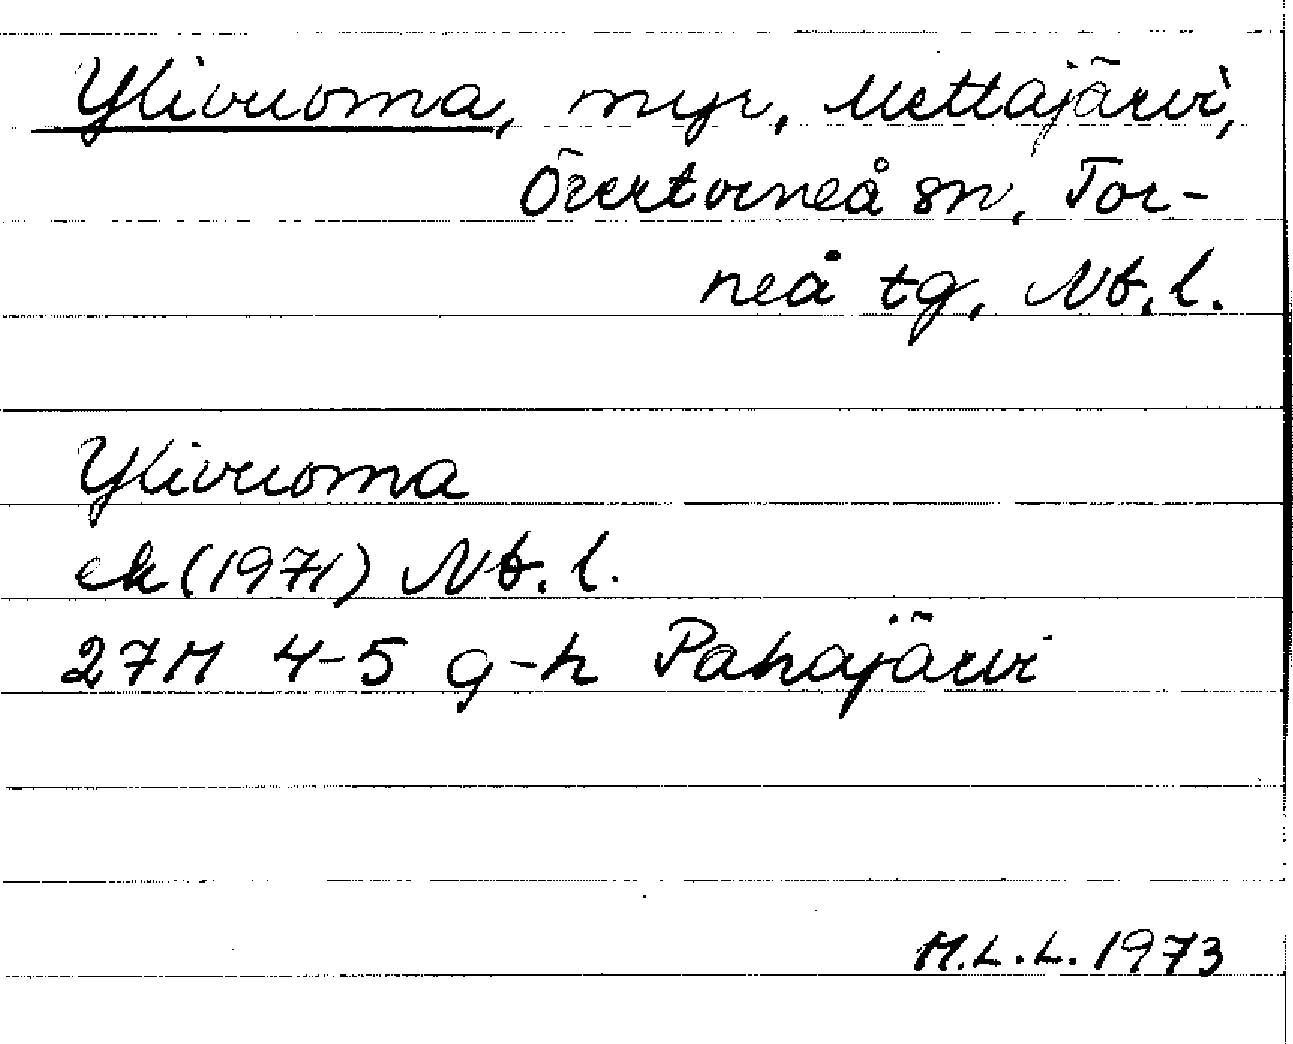 Ylivuoma, myr, Mettajärvi,
Övertorneå sn, Tor-
neå tg, Nb. l.
Ylivuoma
ek (1971) Nb. l.
27M 4-5 g-h Pahajärvi
M.L.L. 1973